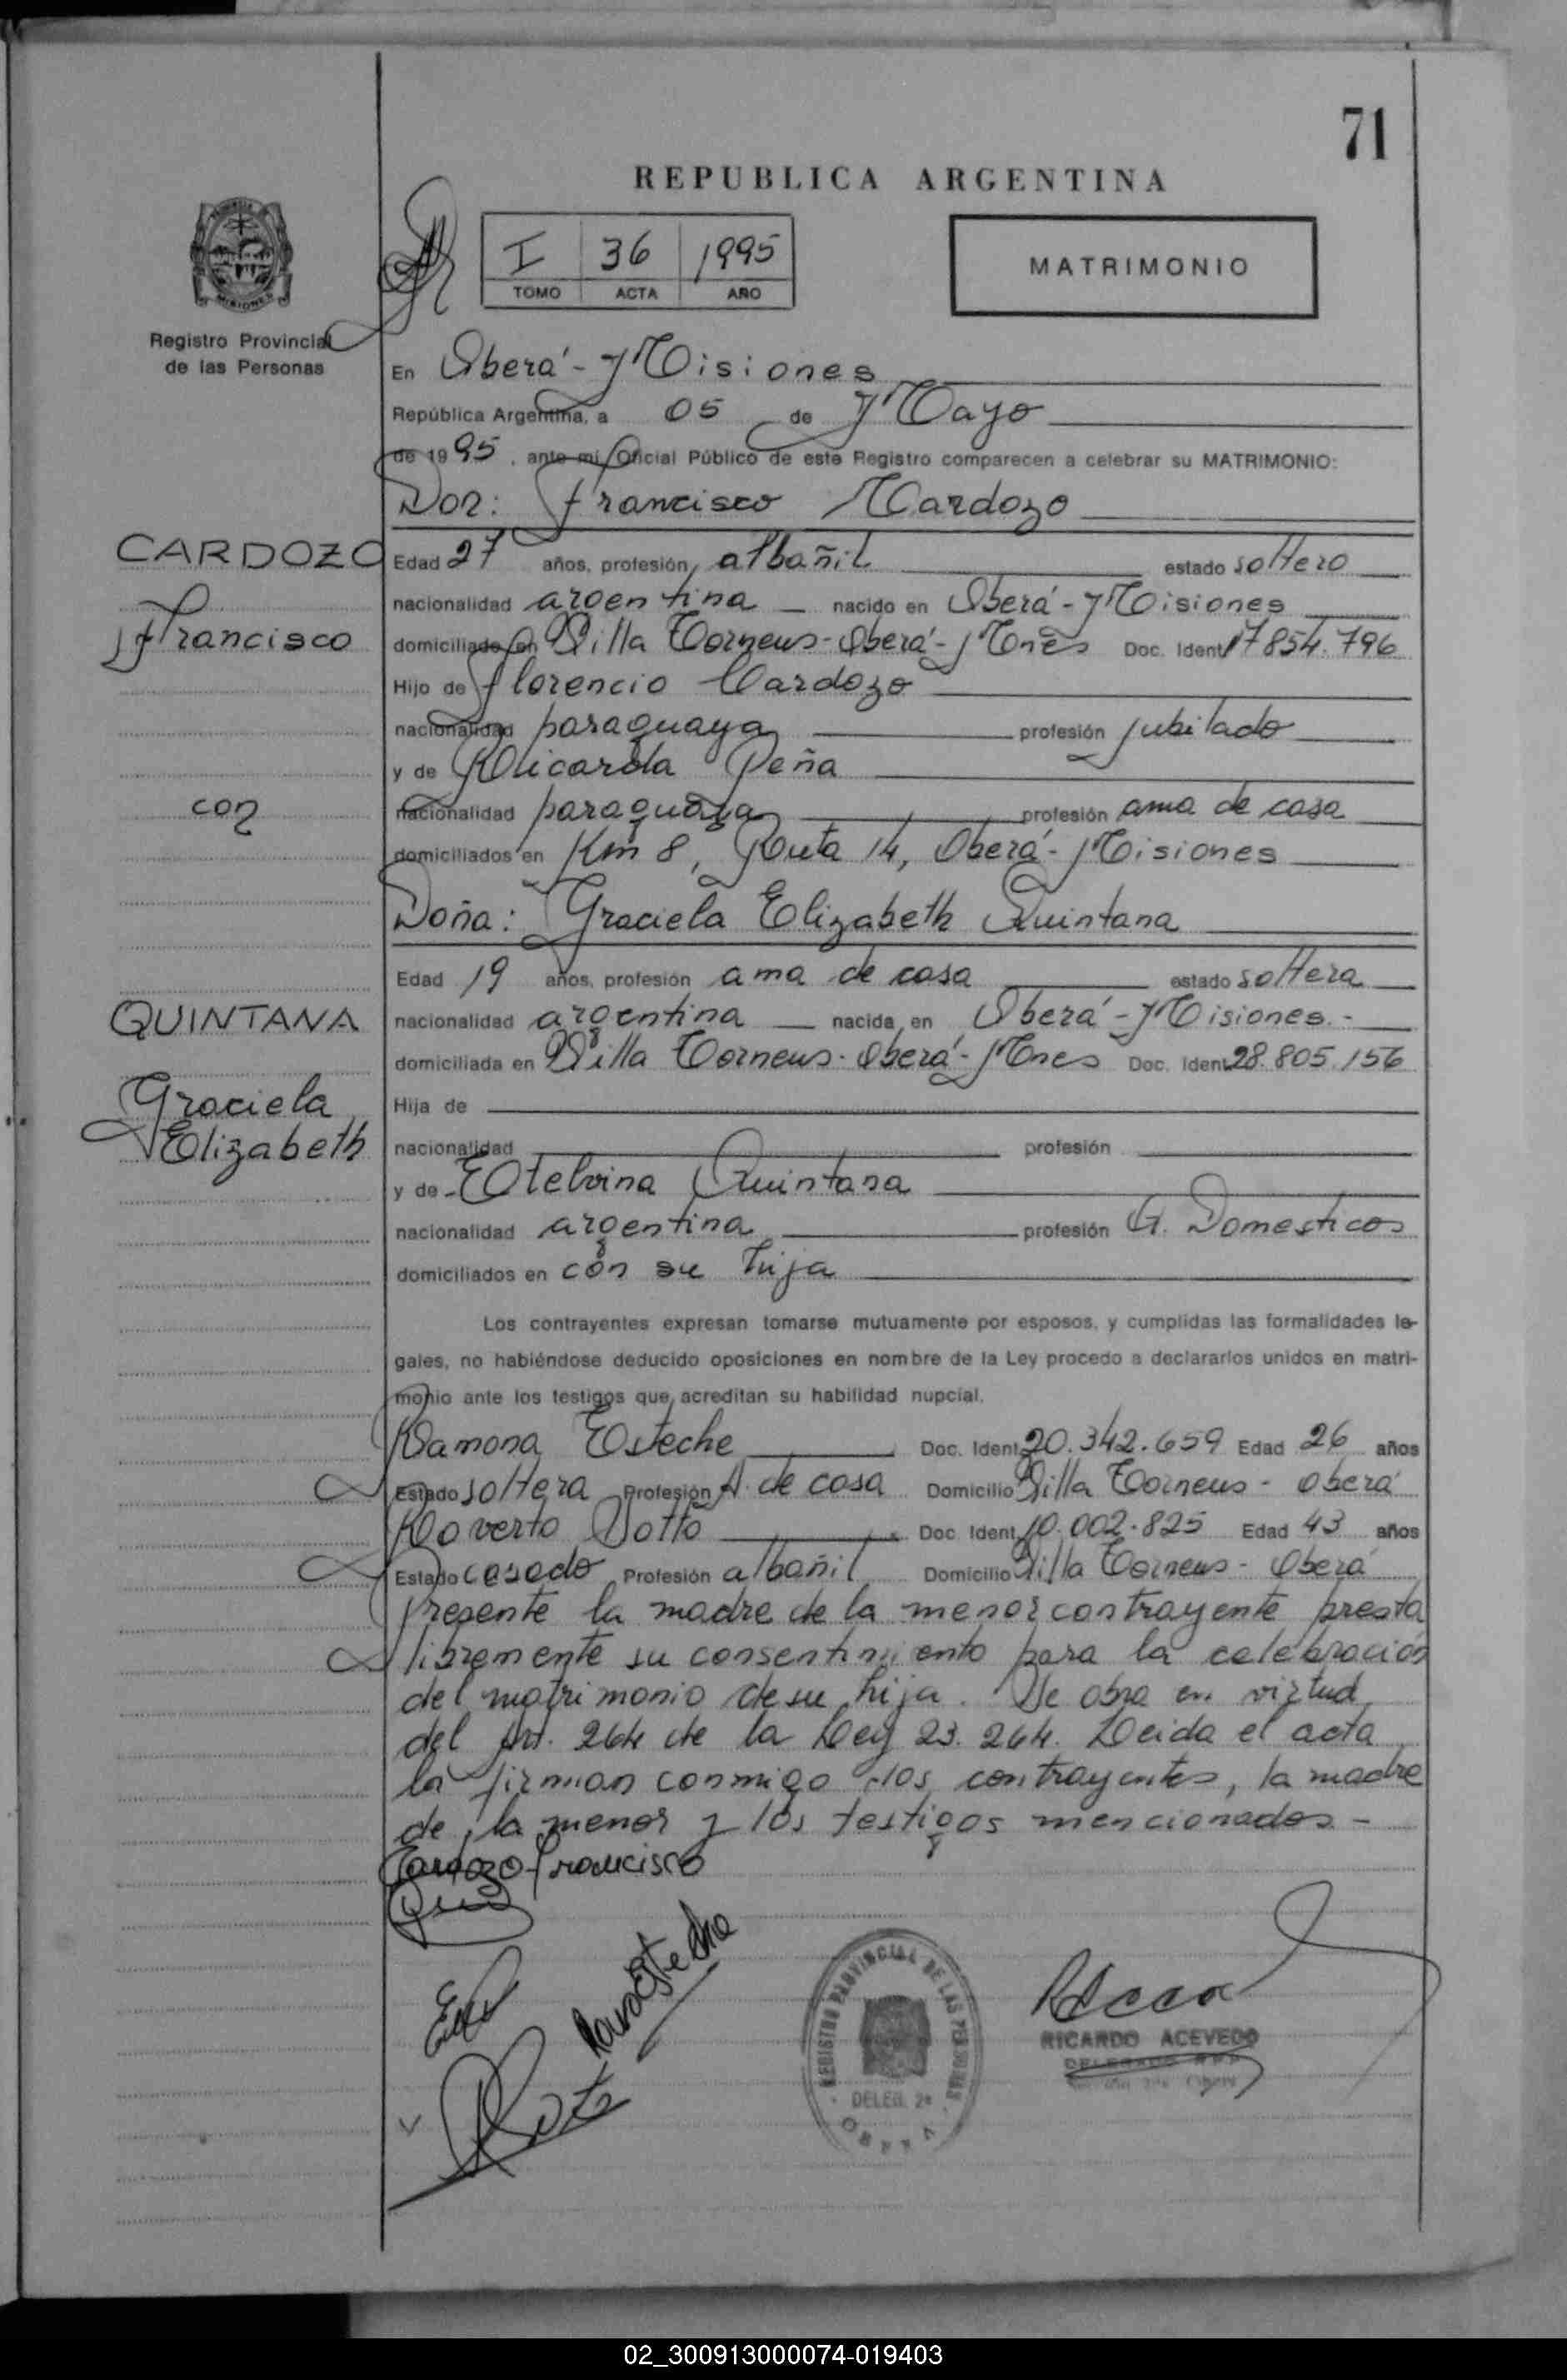 71
REPUBLICA ARGENTINA
I 36 1995
TOMO ACTA AÑO
MATRIMONIO
MISIONES
Registro Provincial
de las Personas
En Oberá - Misiones
República Argentina, a 05 de Mayo
de 1995, ante mi, Oficial Público de este Registro comparecen a celebrar su MATRIMONIO:
Don: Francisco Cardozo
CARDOZO
Francisco
con
QUINTANA
Graciela
Elizabeth
Edad 27 años, profesión albañil estado soltero
nacionalidad argentina nacido en Oberá - Misiones
domiciliado en Villa Torneus - Oberá - Mnes Doc. Ident. 17854.796
Hijo de Florencio Cardozo
nacionalidad paraguaya profesión jubilado
y de Ricarda Peña
nacionalidad paraguaya profesión ama de casa
domiciliados en Km 8, Ruta 14, Oberá - Misiones
Doña: Graciela Elizabeth Quintana
Edad 19 años, profesión ama de casa estado soltera
nacionalidad argentina nacida en Oberá - Misiones.-
domiciliada en Villa Torneus - Oberá - Mnes Doc. Ident. 28.805.156
Hija de
nacionalidad profesión
y de - Etelvina Quintana
nacionalidad argentina profesión Q. Domesticos
domiciliados en con su hija
Los contrayentes expresan tomarse mutuamente por esposos, y cumplidas las formalidades le-
gales, no habiéndose deducido oposiciones en nombre de la Ley procedo a declararlos unidos en matri-
monio ante los testigos que acreditan su habilidad nupcial.
Ramona Esteche Doc. Ident. 20.342.659 Edad 26 años
Estado soltera Profesión A. de casa Domicilio Villa Torneus - Oberá
Roverto Dotto Doc. Ident. 10.002.825 Edad 43 años
Estado casado Profesión albañil Domicilio Villa Torneus - Oberá
Presente la madre de la menor contrayente presta
libremente su consentimiento para la celebración
del matrimonio de su hija. Se obra en virtud
del Art. 264 de la Ley 23.264. Leida el acta
la firman conmigo los contrayentes, la madre
de la menor y los testigos mencionados -
Cardozo Francisco
REGISTRO PROVINCIAL DE LAS PERSONAS
DELEG. 2ª
OBERA
RICARDO ACEVEDO
DELEGADO R.P.P.
02_300913000074-019403